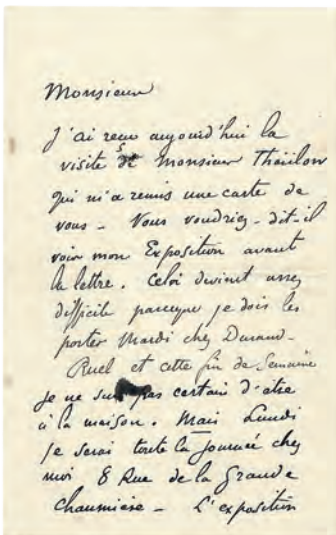 Monsieur
J'ai reçu aujourd'hui la
visite de Monsieur Thiilon
qui m'a remis une carte de
vous - Vous voudriez - dit-il
voir mon Exposition avant
la lettre. Celà devient assez
difficile parceque je dois les
porter Mardi chez Durand-
Ruel et cette fin de Semaine
je ne suis pas certain d'être
à la maison. Mais Lundi
je serai toute la journée chez
moi 8 Rue de la Grande
chaumière - L'exposition